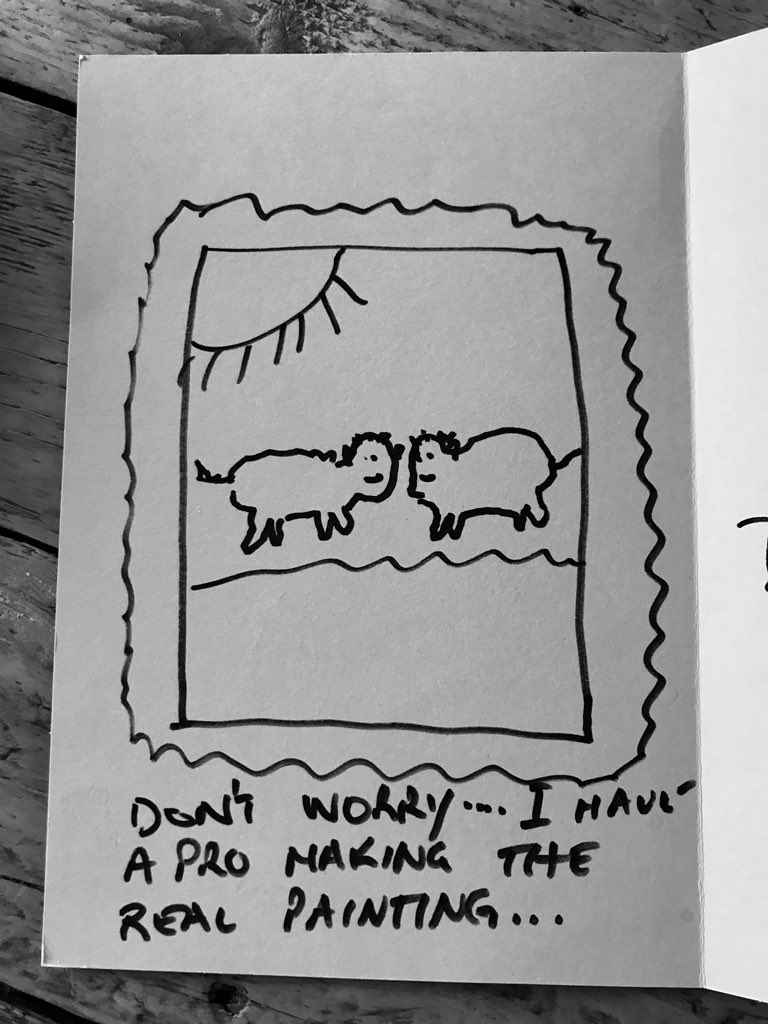 DON'T WORRY.... I HAVE
A PRO MAKING THE
REAL PAINTING...